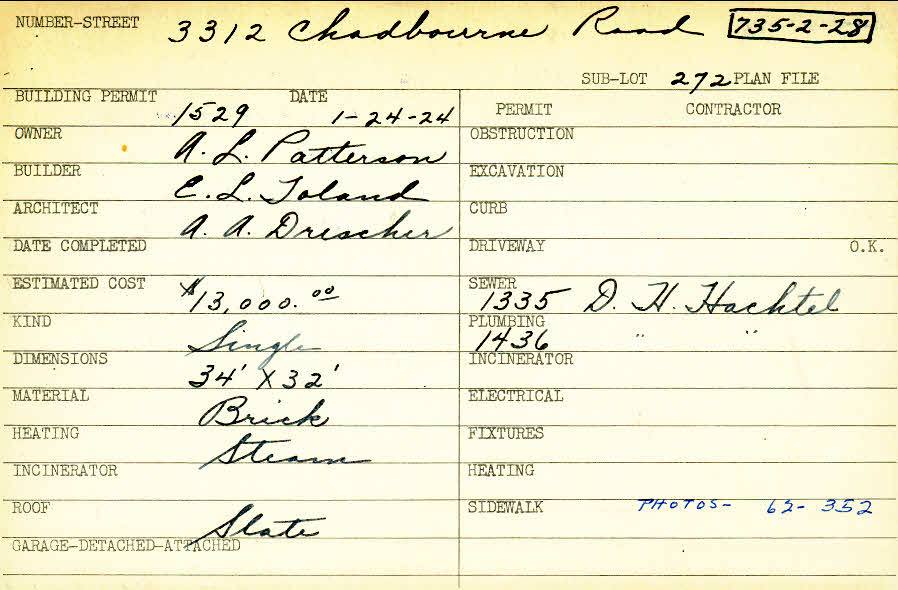 NUMBER-STREET 3312 Chadbourne Road 735-2-28
SUB-LOT 272 PLAN FILE
BUILDING PERMIT 1529 DATE 1-24-24
PERMIT CONTRACTOR
OWNER A. L. Patterson
OBSTRUCTION
BUILDER C. L. Toland
EXCAVATION
ARCHITECT A. A. Drescher
CURB
DATE COMPLETED
DRIVEWAY O.K.
ESTIMATED COST $13,000.00
SEWER 1335 D. H. Hachtel
KIND Single
PLUMBING 1436 " "
DIMENSIONS 34' X 32'
INCINERATOR
MATERIAL Brick
ELECTRICAL
HEATING Steam
FIXTURES
INCINERATOR
HEATING
ROOF Slate
SIDEWALK PHOTOS- 62-352
GARAGE-DETACHED-ATTACHED